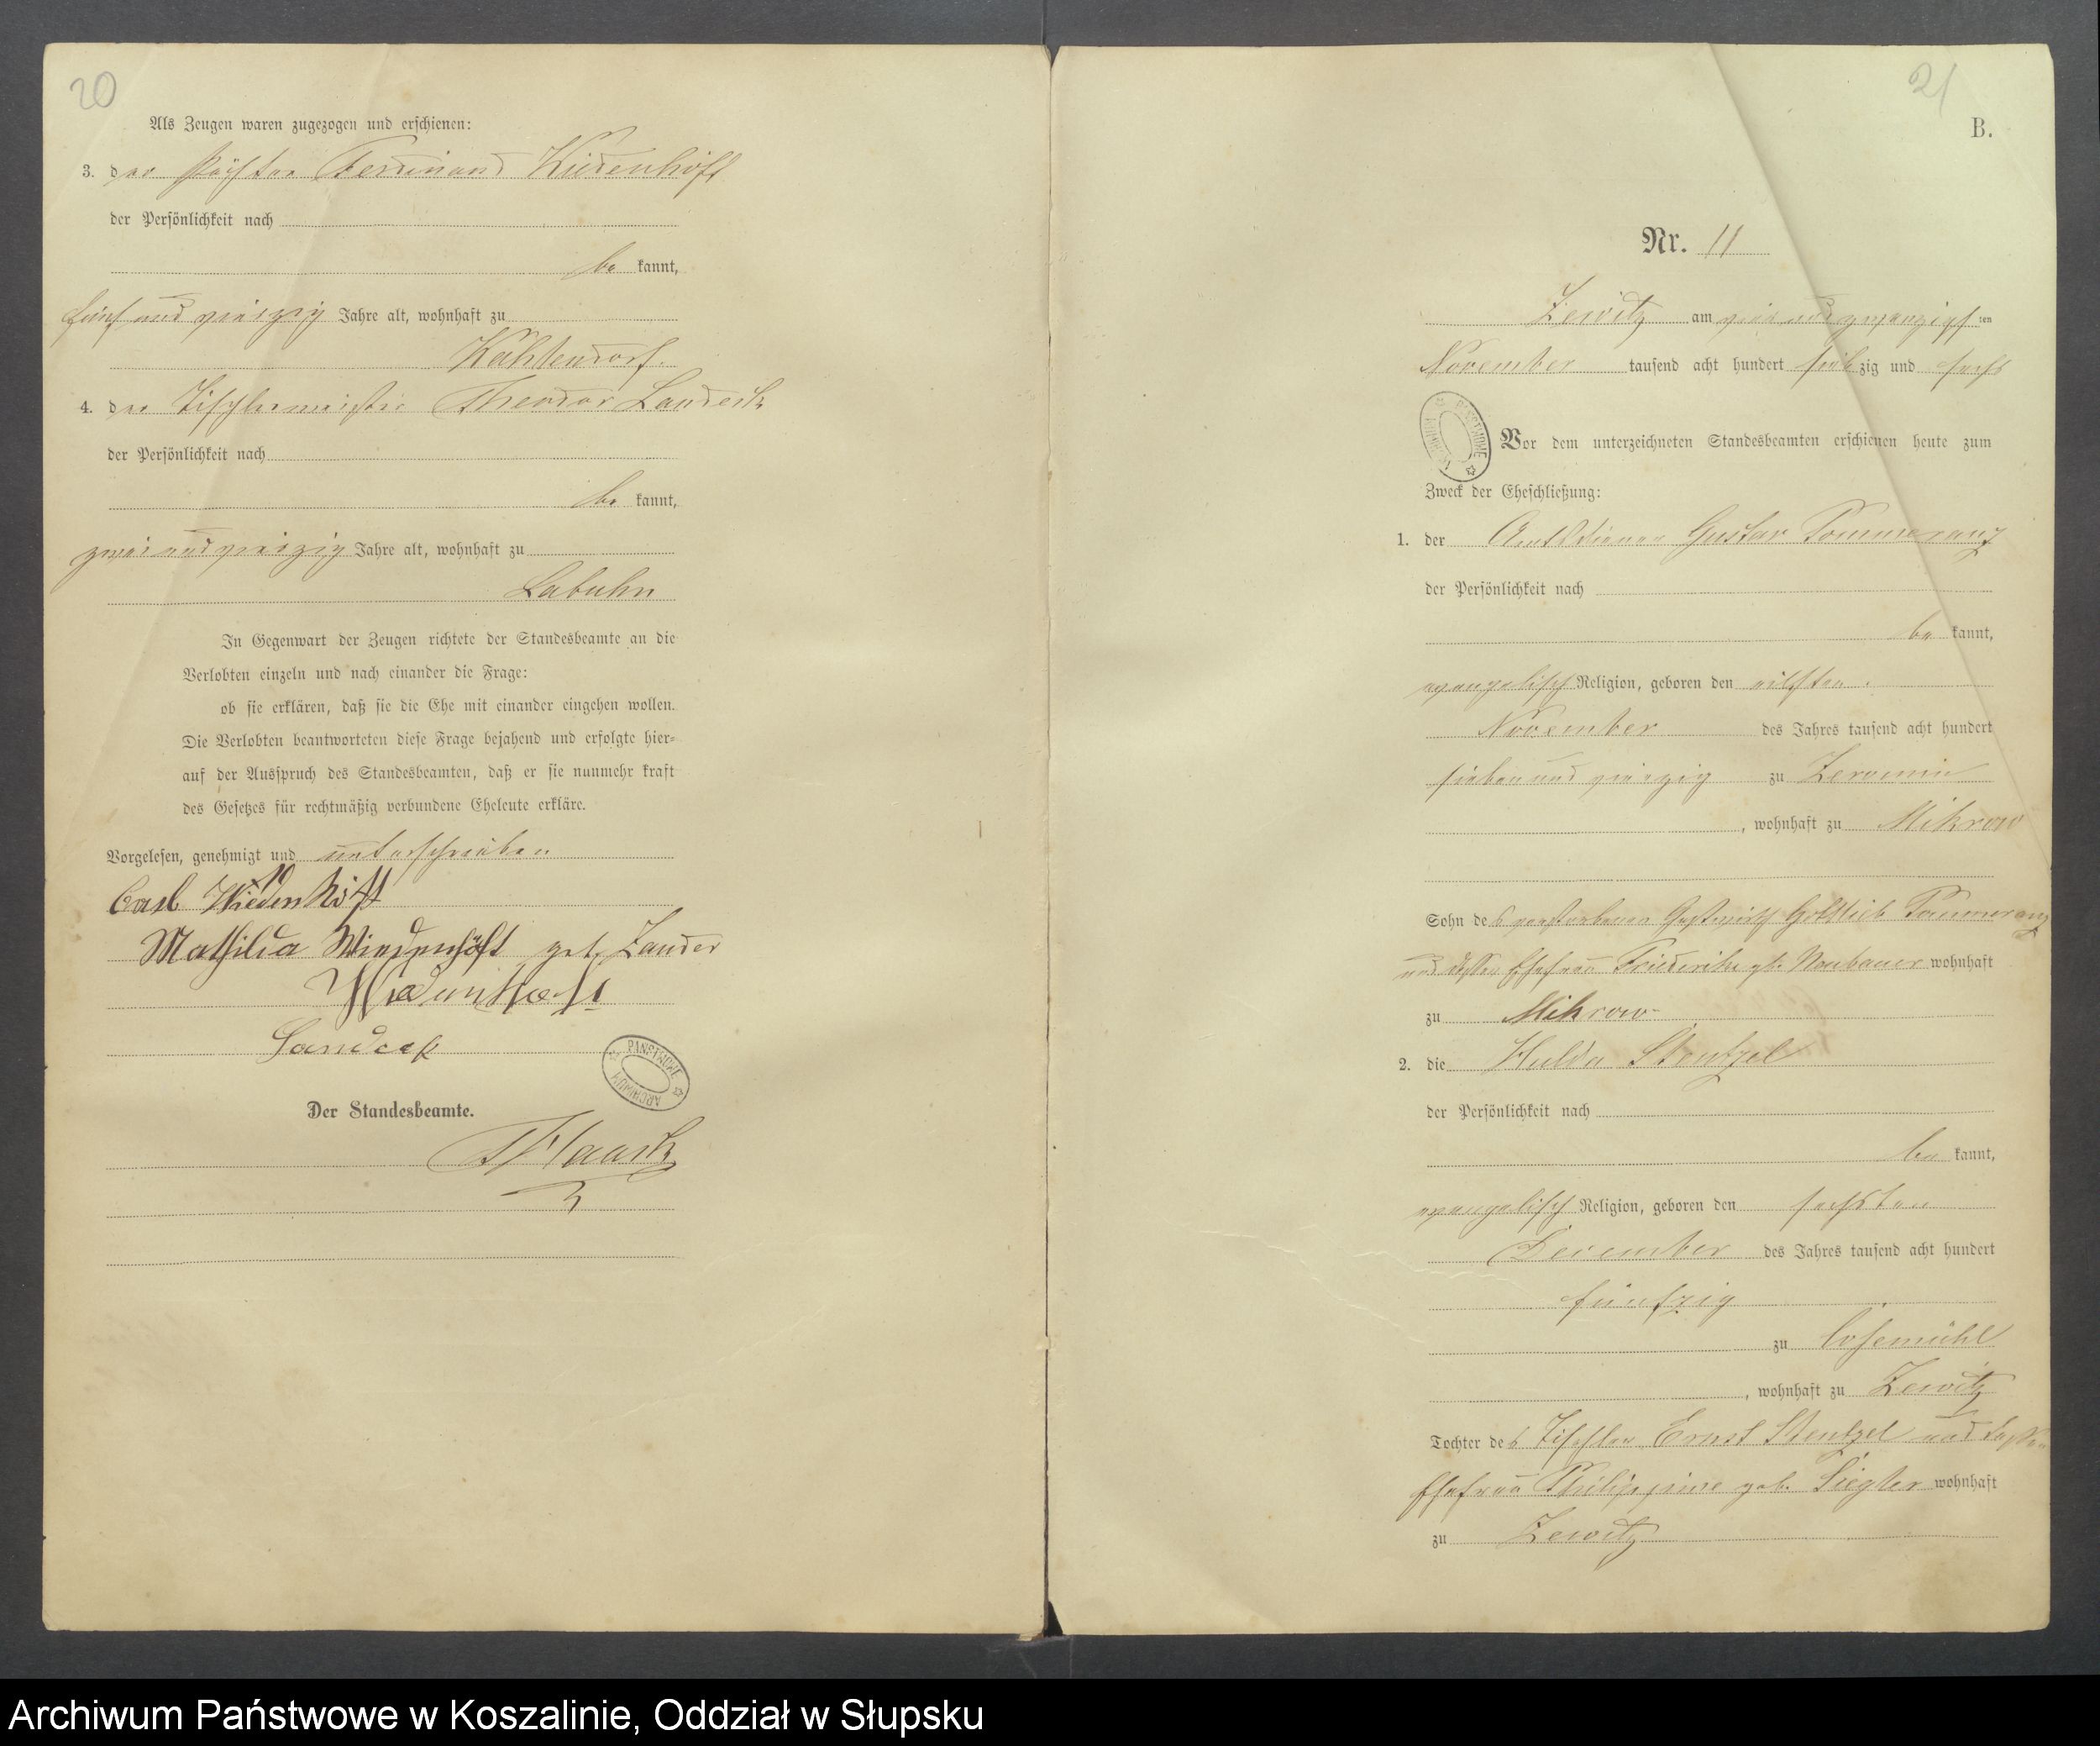 20
Als Zeugen waren zugezogen und erschienen:
3. der Ferdinand Wiedenhöft
der Persönlichkeit nach
be kannt,
fünf und vierzig Jahre alt, wohnhaft zu
4. der Tischlermeister Theodor Landeck
der Persönlichkeit nach
be kannt,
zwei und vierzig Jahre alt, wohnhaft zu
Labuhn
In Gegenwart der Zeugen richtete der Standesbeamte an die
Verlobten einzeln und nach einander die Frage:
ob sie erklären, daß sie die Ehe mit einander eingehen wollen.
Die Verlobten beantworteten diese Frage bejahend und erfolgte hier-
auf der Ausspruch des Standesbeamten, daß er sie nunmehr kraft
des Gesetzes für rechtmäßig verbundene Eheleute erkläre.
Vorgelesen, genehmigt und unterschrieben
Carl Wiedenhöft
Mathilda Wiedenhöft geb. Zander
Wiedenhöft
Landeck
ARCHIWUM PAŃSTWOWE
Der Standesbeamte.
21
B.
Nr. 11
Zewitz am vier und zwanzigsten
November tausend acht hundert siebzig und sechs
ARCHIWUM PAŃSTWOWE
Vor dem unterzeichneten Standesbeamten erschienen heute zum
Zweck der Eheschließung:
1. der Amtsdiener Gustav Pommeranz
der Persönlichkeit nach
be kannt,
evangelisch Religion, geboren den eilften
November des Jahres tausend acht hundert
sieben und vierzig zu Zeromin
, wohnhaft zu Mikrow
Sohn des verstorbenen Gastwirth Gottlieb Pommeranz
und dessen Ehefrau Friederike geb. Neubauer wohnhaft
zu Mikrow
2. die Hulda Stentzel
der Persönlichkeit nach
be kannt,
evangelisch Religion, geboren den sechsten
December des Jahres tausend acht hundert
fünfzig
zu
, wohnhaft zu Zewitz
Tochter des Tischler Ernst Stentzel und dessen
Ehefrau Philippine geb. Siegler wohnhaft
zu Zewitz
Archiwum Państwowe w Koszalinie, Oddział w Słupsku